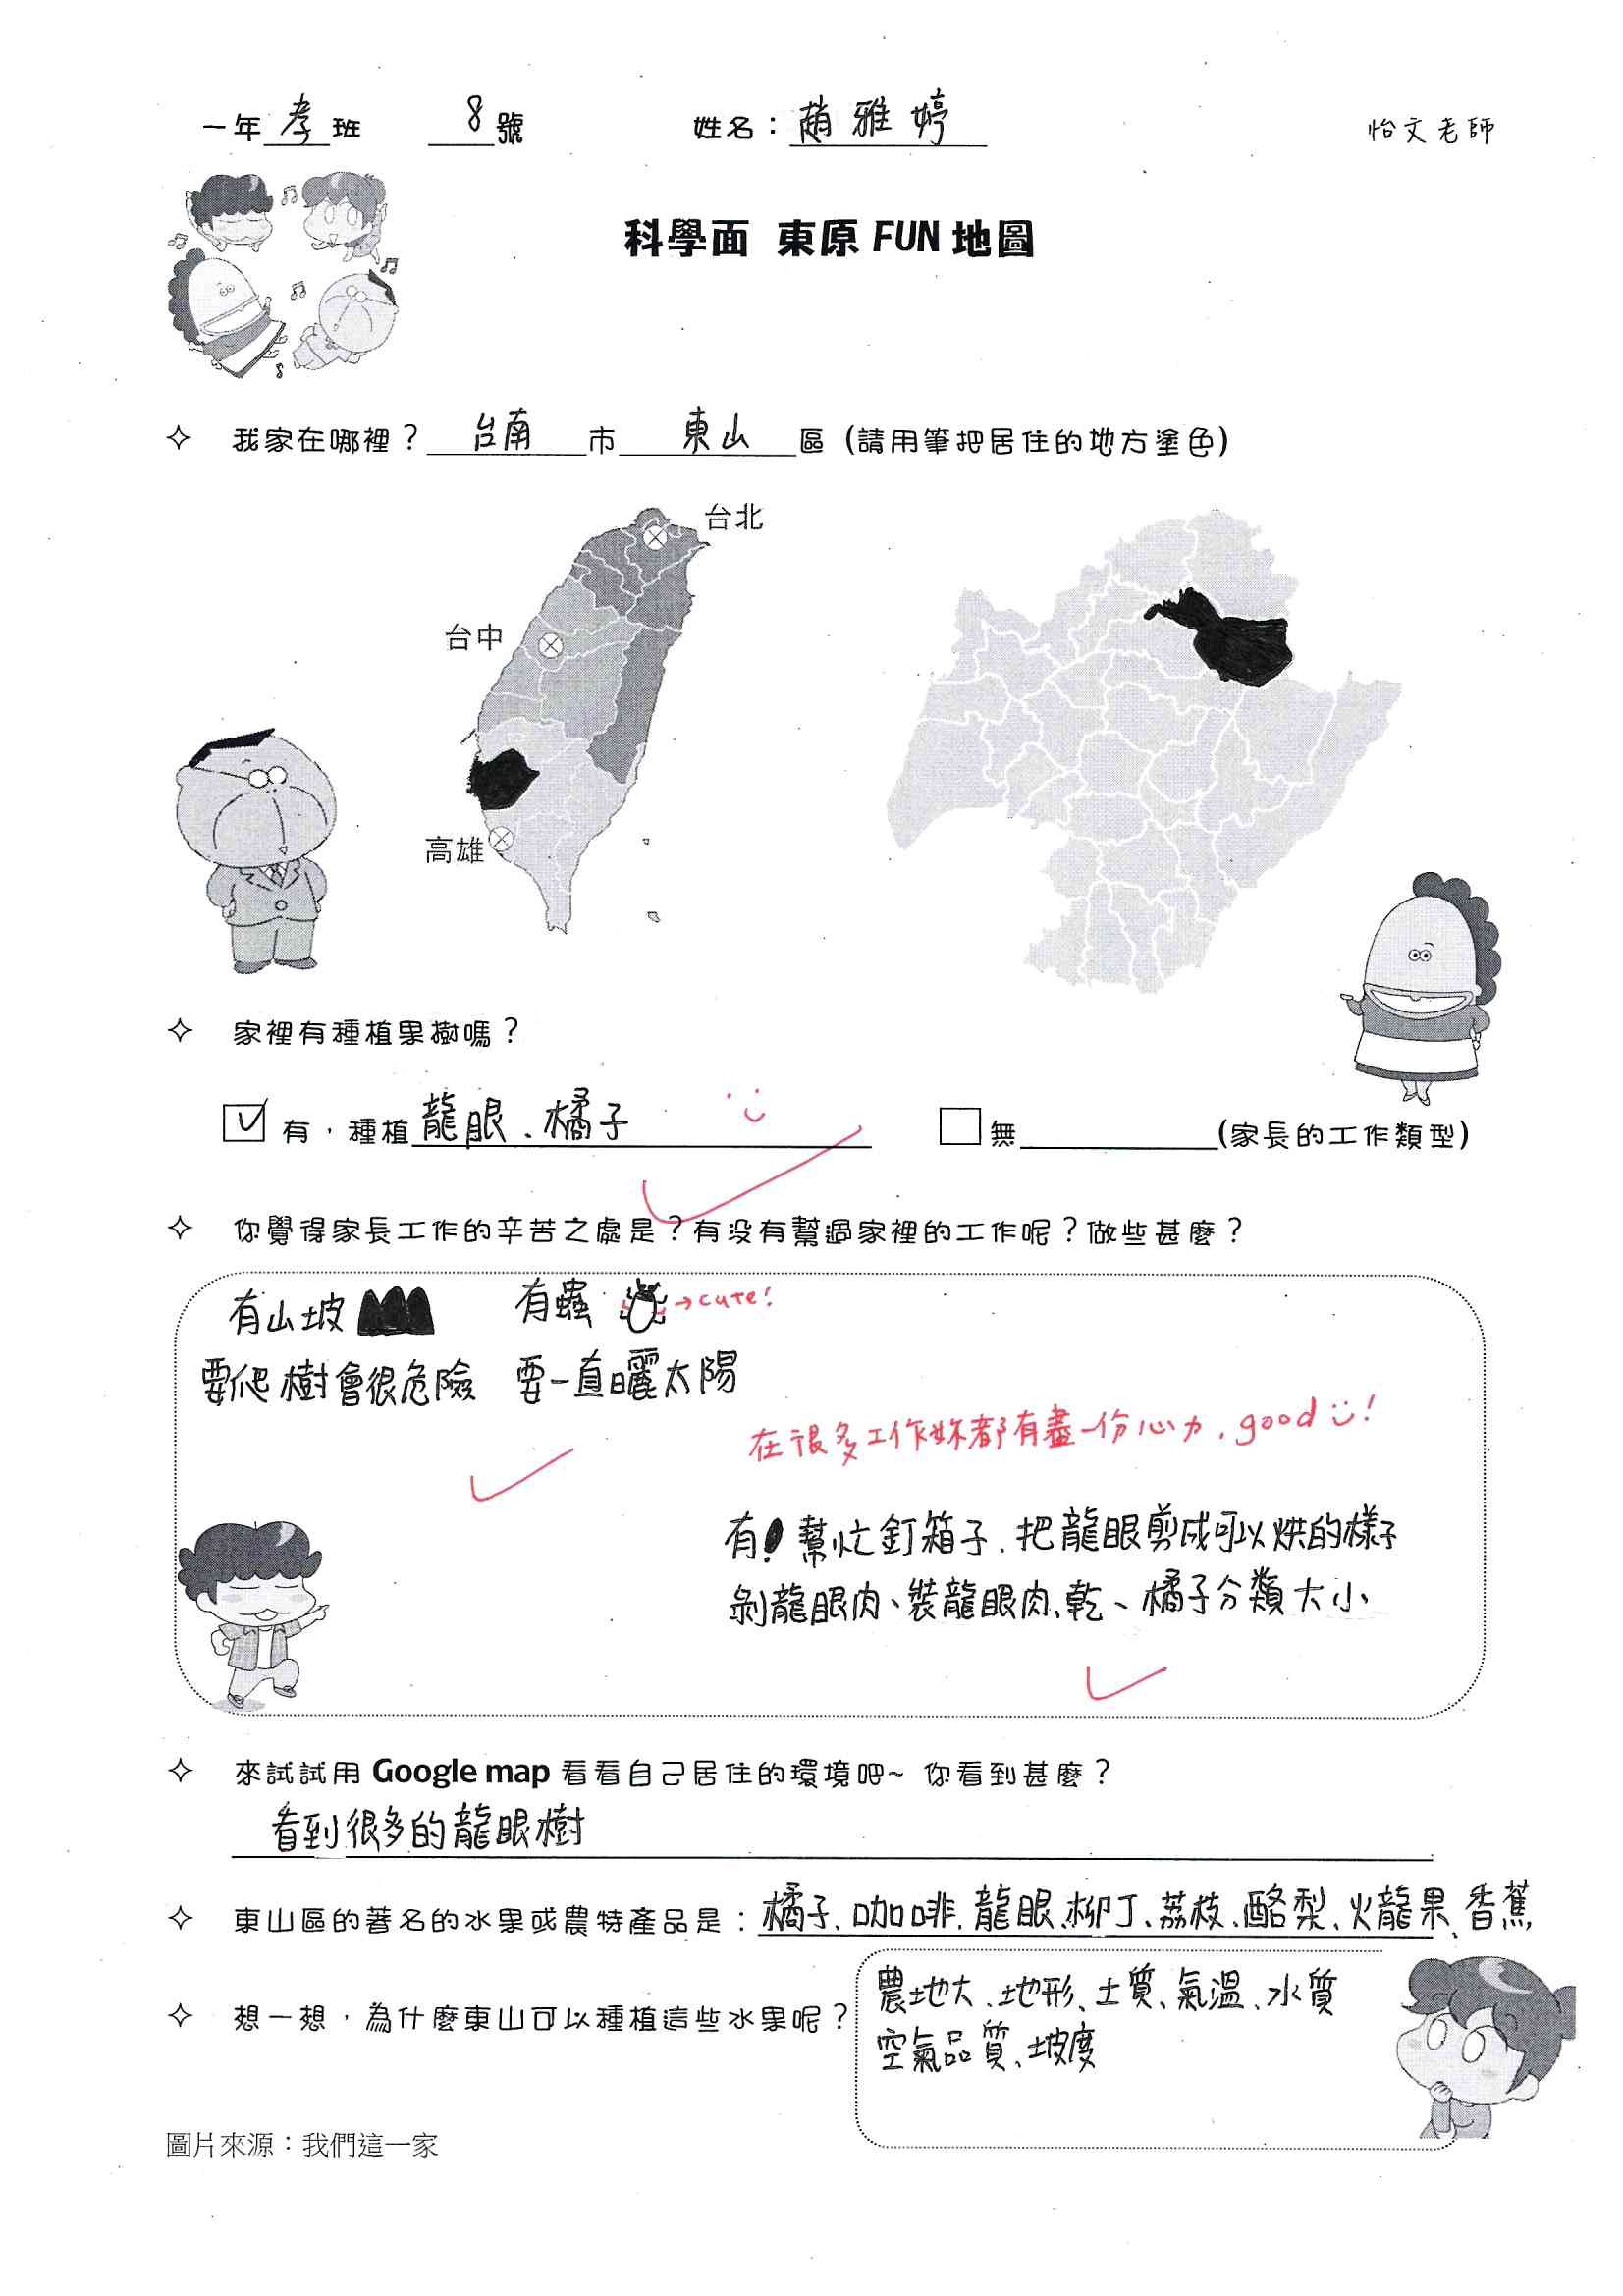 一年孝班 8號 姓名：趙雅婷 怡文老師
科學面 東原 FUN 地圖
我家在哪裡？台南市東山區 (請用筆把居住的地方塗色)
台北
台中
高雄
家裡有種植果樹嗎？
有，種植龍眼、橘子 無 (家長的工作類型)
你覺得家長工作的辛苦之處是？有沒有幫過家裡的工作呢？做些甚麼？
有山坡 有蟲 →cute!
要爬樹會很危險 要一直曬太陽
在很多工作妳都有盡一份心力，good!
有！幫忙釘箱子、把龍眼剪成可以烘的樣子
剝龍眼肉、裝龍眼肉、乾、橘子分類大小、
來試試用 Google map 看看自己居住的環境吧~ 你看到甚麼？
看到很多的龍眼樹
東山區的著名的水果或農特產品是：橘子、咖啡、龍眼、柳丁、荔枝、酪梨、火龍果、香蕉
想一想，為什麼東山可以種植這些水果呢？
農地大、地形、土質、氣溫、水質
空氣品質、坡度
圖片來源：我們這一家